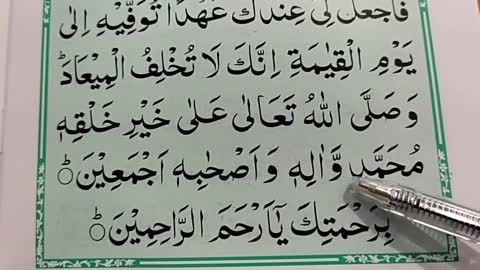 فَاجْعَلْ لِّیْ عِنْدَكَ عَهْدًا تُوَفِّيْهِ اِلٰى
يَوْمِ الْقِيٰمَةِ اِنَّكَ لَا تُخْلِفُ الْمِيْعَادَ ؕ
وَصَلَّى اللّٰهُ تَعَالٰى عَلٰى خَيْرِ خَلْقِهٖ
مُحَمَّدٍ وَّاٰلِهٖ وَاَصْحٰبِهٖ اَجْمَعِيْنَ ؕ
بِرَحْمَتِكَ يَآاَرْحَمَ الرَّاحِمِيْنَ ؕ